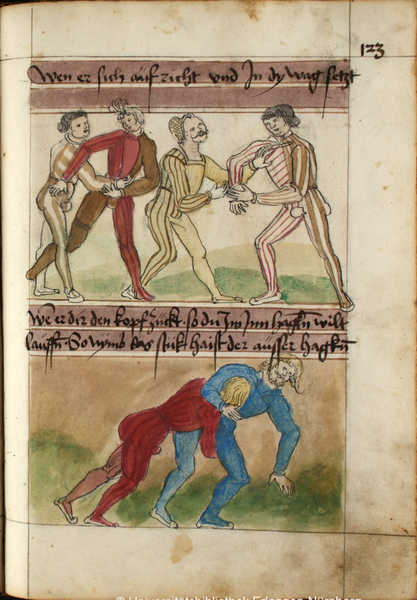 123
Wen er sich auf richt vnd In dy wag setzt
We er dir den kopf zuckt so du Im Inn hagkñ wilt
lauffñ So nymb das stuk haist der ausser hagkñ
© Universitätsbibliothek Erlangen-Nürnberg